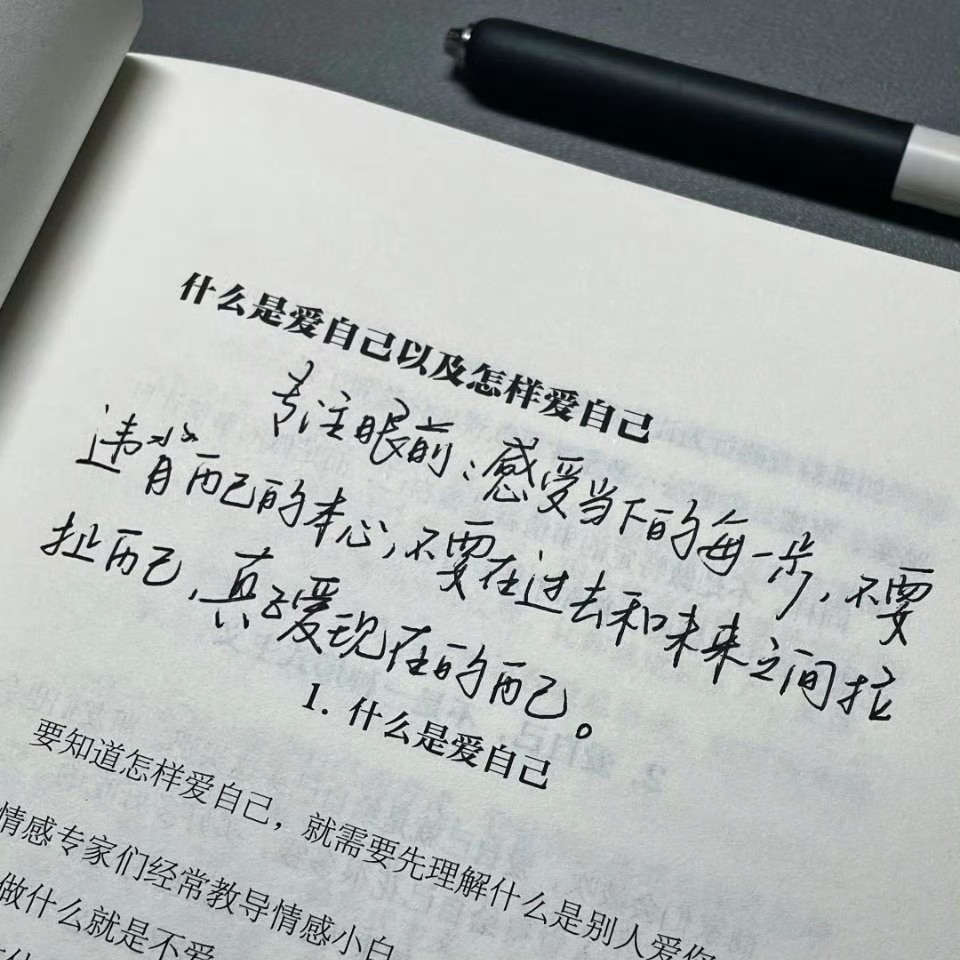 什么是爱自己以及怎样爱自己
专注眼前:感受当下的每一步,不要
违背自己的本心,不要在过去和未来之间拉
扯自己,真正爱现在的自己。
1. 什么是爱自己
要知道怎样爱自己，就需要先理解什么是别人爱你
情感专家们经常教导情感小白
做什么就是不爱